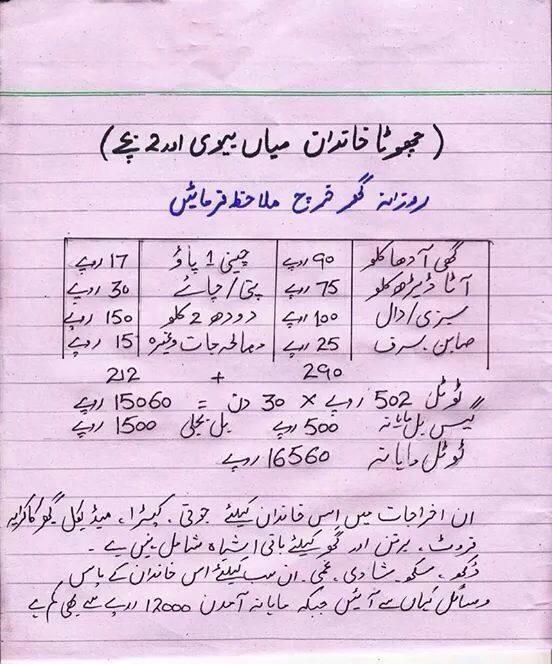 (چھوٹا خاندان میاں بیوی اور 2 بچے)
روزانہ گھر خرچ ملاحظہ فرمائیں
گھی آدھا کلو 90 روپے چینی 1 پاؤ 17 روپے
آٹا ڈیڑھ کلو 75 روپے پتی/چائے 30 روپے
سبزی/دال 100 روپے دودھ 2 کلو 150 روپے
صابن.سرف 25 روپے مصالحہ جات وغیرہ 15 روپے
290 + 212
ٹوٹل 502 روپے × 30 دن = 15060 روپے
گیس بل ماہانہ 500 روپے بل بجلی 1500 روپے
ٹوٹل ماہانہ 16560 روپے
ان اخراجات میں اس خاندان کیلئے جوتی، کپڑا، میڈیکل گھر کا کرایہ
فروٹ، برتن اور گھر کیلئے باقی اشیاہ شامل نہیں ہے۔
دُکھ، سکھ شادی، غمی. ان سب کیلئے اس خاندان کے پاس
وسائل کہاں سے آئیں جبکہ ماہانہ آمدن 12000 روپے سے بھی کم ہے